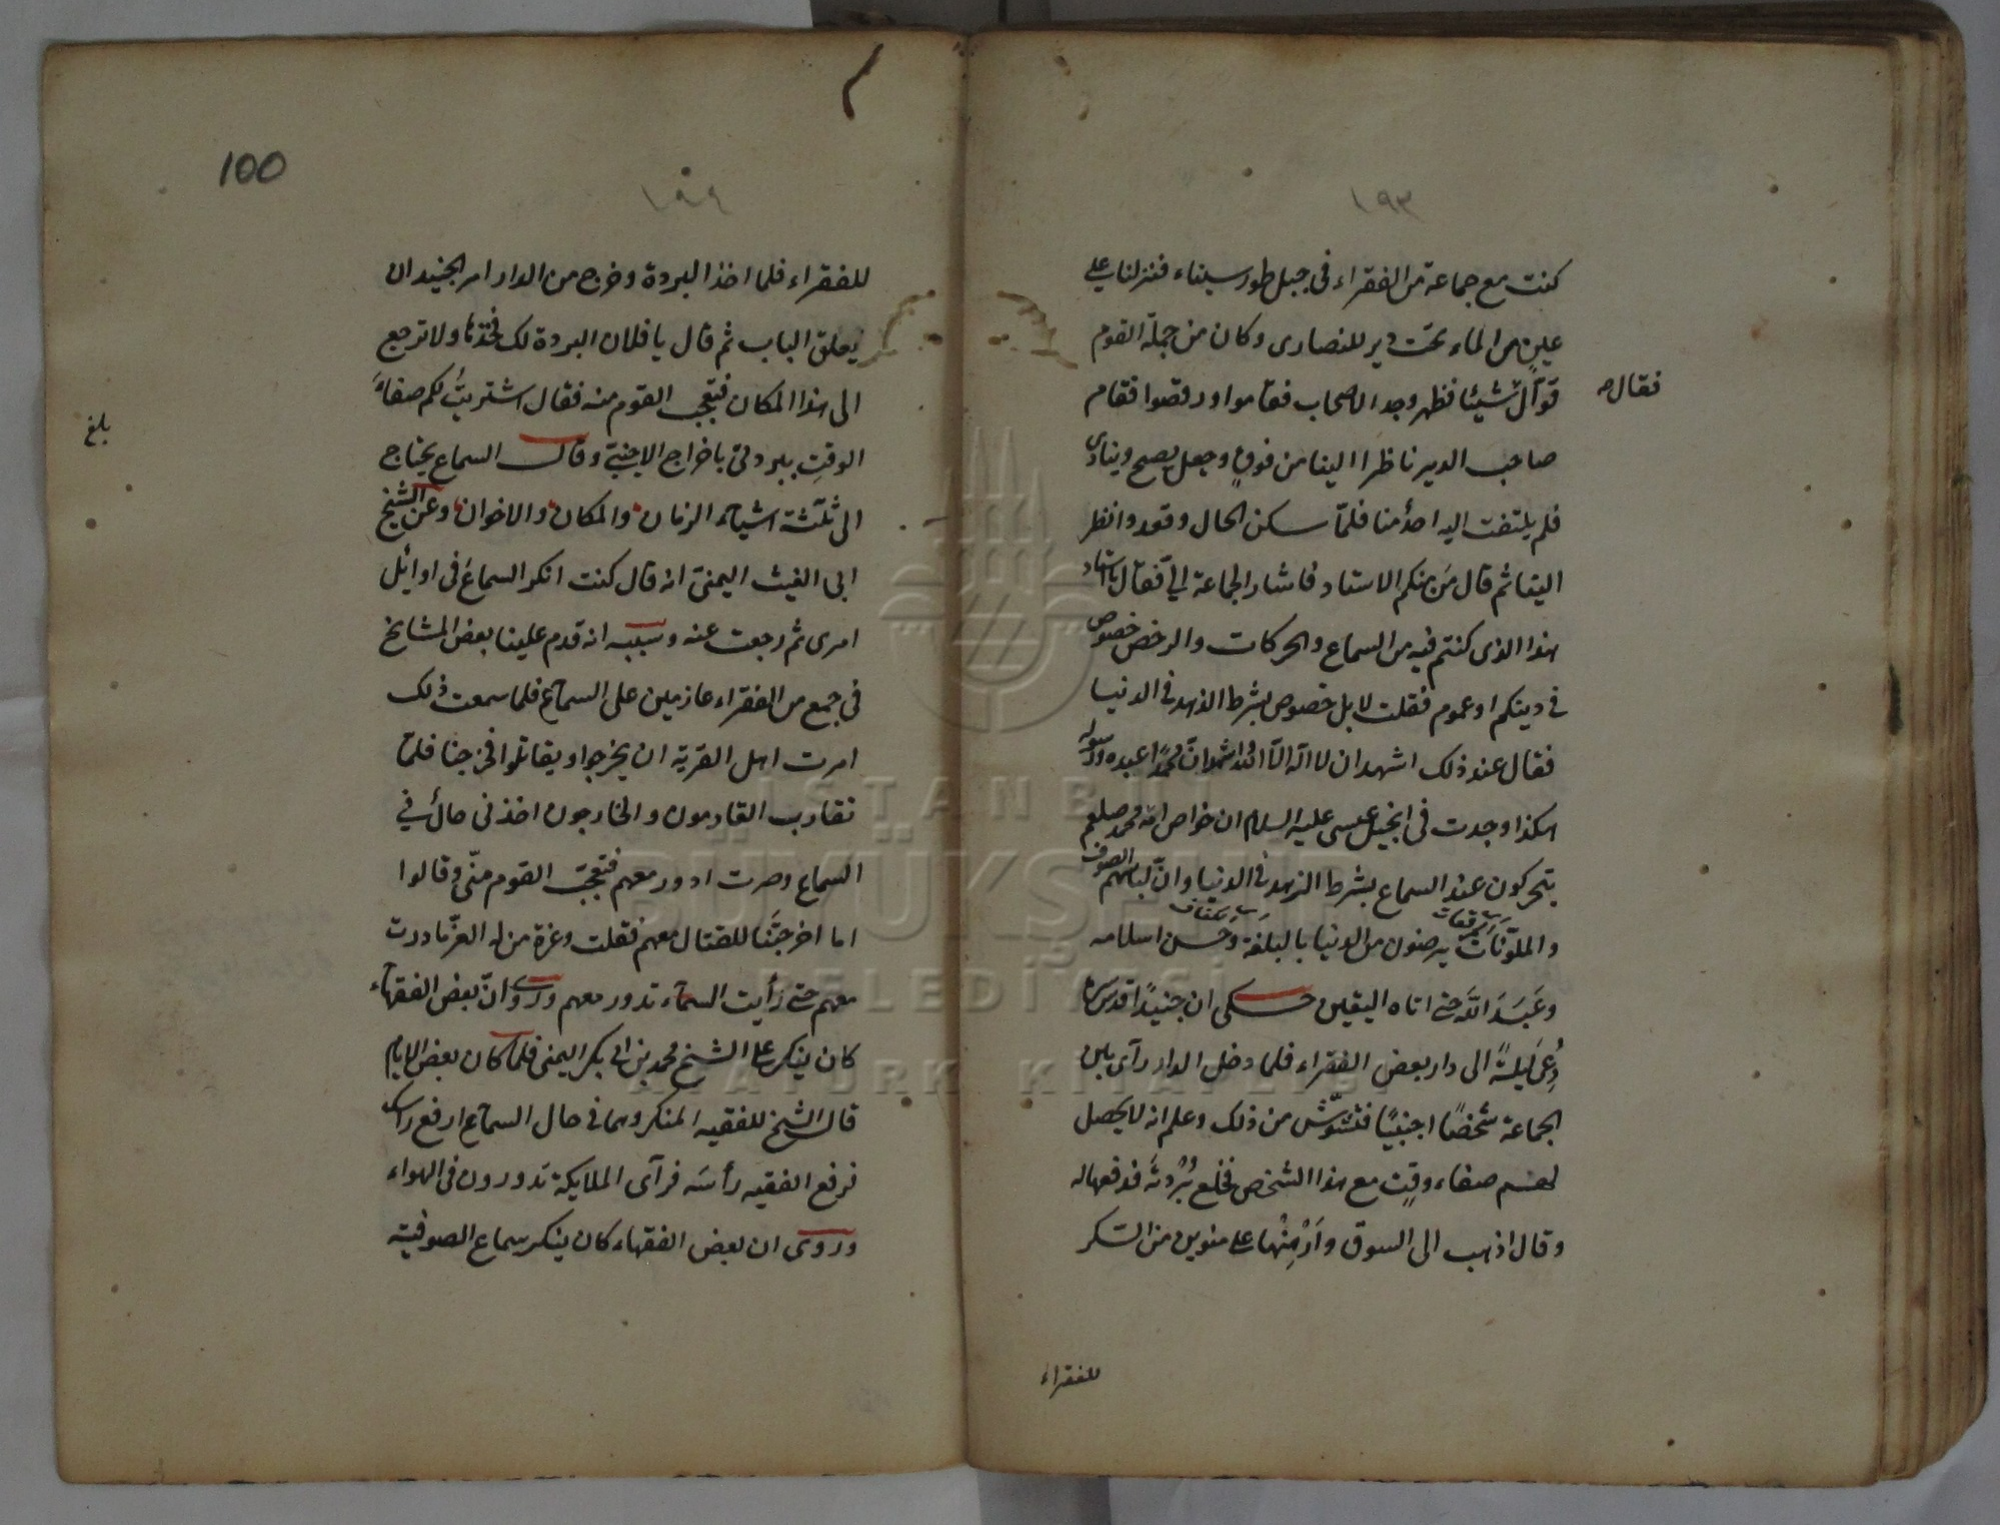 ١٩٣
كنت مع جماعة من الفقراء فى جبل طور سيناء فنزلنا على
عين من الماء تحت دير للنصارى وكان من جملة القوم
قوّال شيئا فظهر وجد الاصحاب فقاموا ورقصوا فقام
فقال ص
صاحب الدير ناظرا الينا من فوق وجعل يصيح وينادى
فلم يلتفت اليه احد منا فلمّا سكن الحال وقعدوا نظر
الينا ثم قال مَن منكم الاستاد فاشار الجماعة الىّ فقال يا استاد
هذا الذى كنتم فيه من السماع والحركات والرخص خصوص
فى دينكم او عموم فقلت لا بل خصوص بشرط الزهد فى الدنيا
فقال عند ذلك اشهد ان لا اله الا الله واشهد ان محمدًا عبده ورسوله
هكذا وجدت فى انجيل عيسى عليه السلام ان خواص امة محمد صلعم
يتحركون عند السماع بشرط الزهد فى الدنيا وانّ لباسهم الصوف
والملوّنات يرضون من الدنيا بالبلغة وحسن اسلامه
وعَبَدَ اللّه حتى اتاه اليقين حكى ان جنيدًا قدس سره
دُعى ليلةً الى دار بعض الفقراء فلما دخل الدار رآى بين
الجماعة شخصًا اجنبيًا فتشوّش من ذلك وعلم انه لا يحصل
لهم صفاء وقتٍ مع هذا الشخص فخلع بُرْدته فدفعها له
وقال اذهب الى السوق وارهنها على منوين من السكر
للفقراء
100
١٩٤
للفقراء فلما اخذ البردة وخرج من الدار امر الجنيد ان
يغلق الباب ثم قال يا فلان البردة لك فخذها ولا ترجع
الى هذا المكان فتعجب القوم منه فقال اشتريتُ لكم صفاءَ
بلغ
الوقتِ ببردتى باخراج الاجنبىّ وقال السماع يحتاج
الى ثلثة اشياء الزمان والمكان والاخوان وعن الشيخ
ابى الغيث اليمنى انه قال كنت انكر السماعَ فى اوائل
امرى ثم رجعت عنه وسببه انه قدم علينا بعض المشايخ
فى جمع من الفقراء عازمين على السماع فلما سمعت ذلك
امرت اهل القرية ان يخرجوا ويقاتلوا فخرجنا فلمّا
تقارب القادمون والخارجون اخذنى حالٌ فى
السماع وصرت ادور معهم فتعجّب القوم منّى وقالوا
اما اخرجتَنا للقتال معهم فقلت وعزة من له العزّ ما درت
معهم حتى رأيت السماء تدور معهم وروى انّ بعض الفقهاء
كان ينكر على الشيخ محمد بن ابى بكر اليمنى فلما كان بعض الايام
قال الشيخ للفقيه المنكر وهما فى حال السماع ارفع رأسك
فرفع الفقيه رأسَه فرآى الملايكة تدورون فى الهواء
وروى ان بعض الفقهاء كان ينكر سماع الصوفية
ISTANBUL
BÜYÜKŞEHİR
BELEDİYESİ
ATATÜRK KİTAPLIĞI